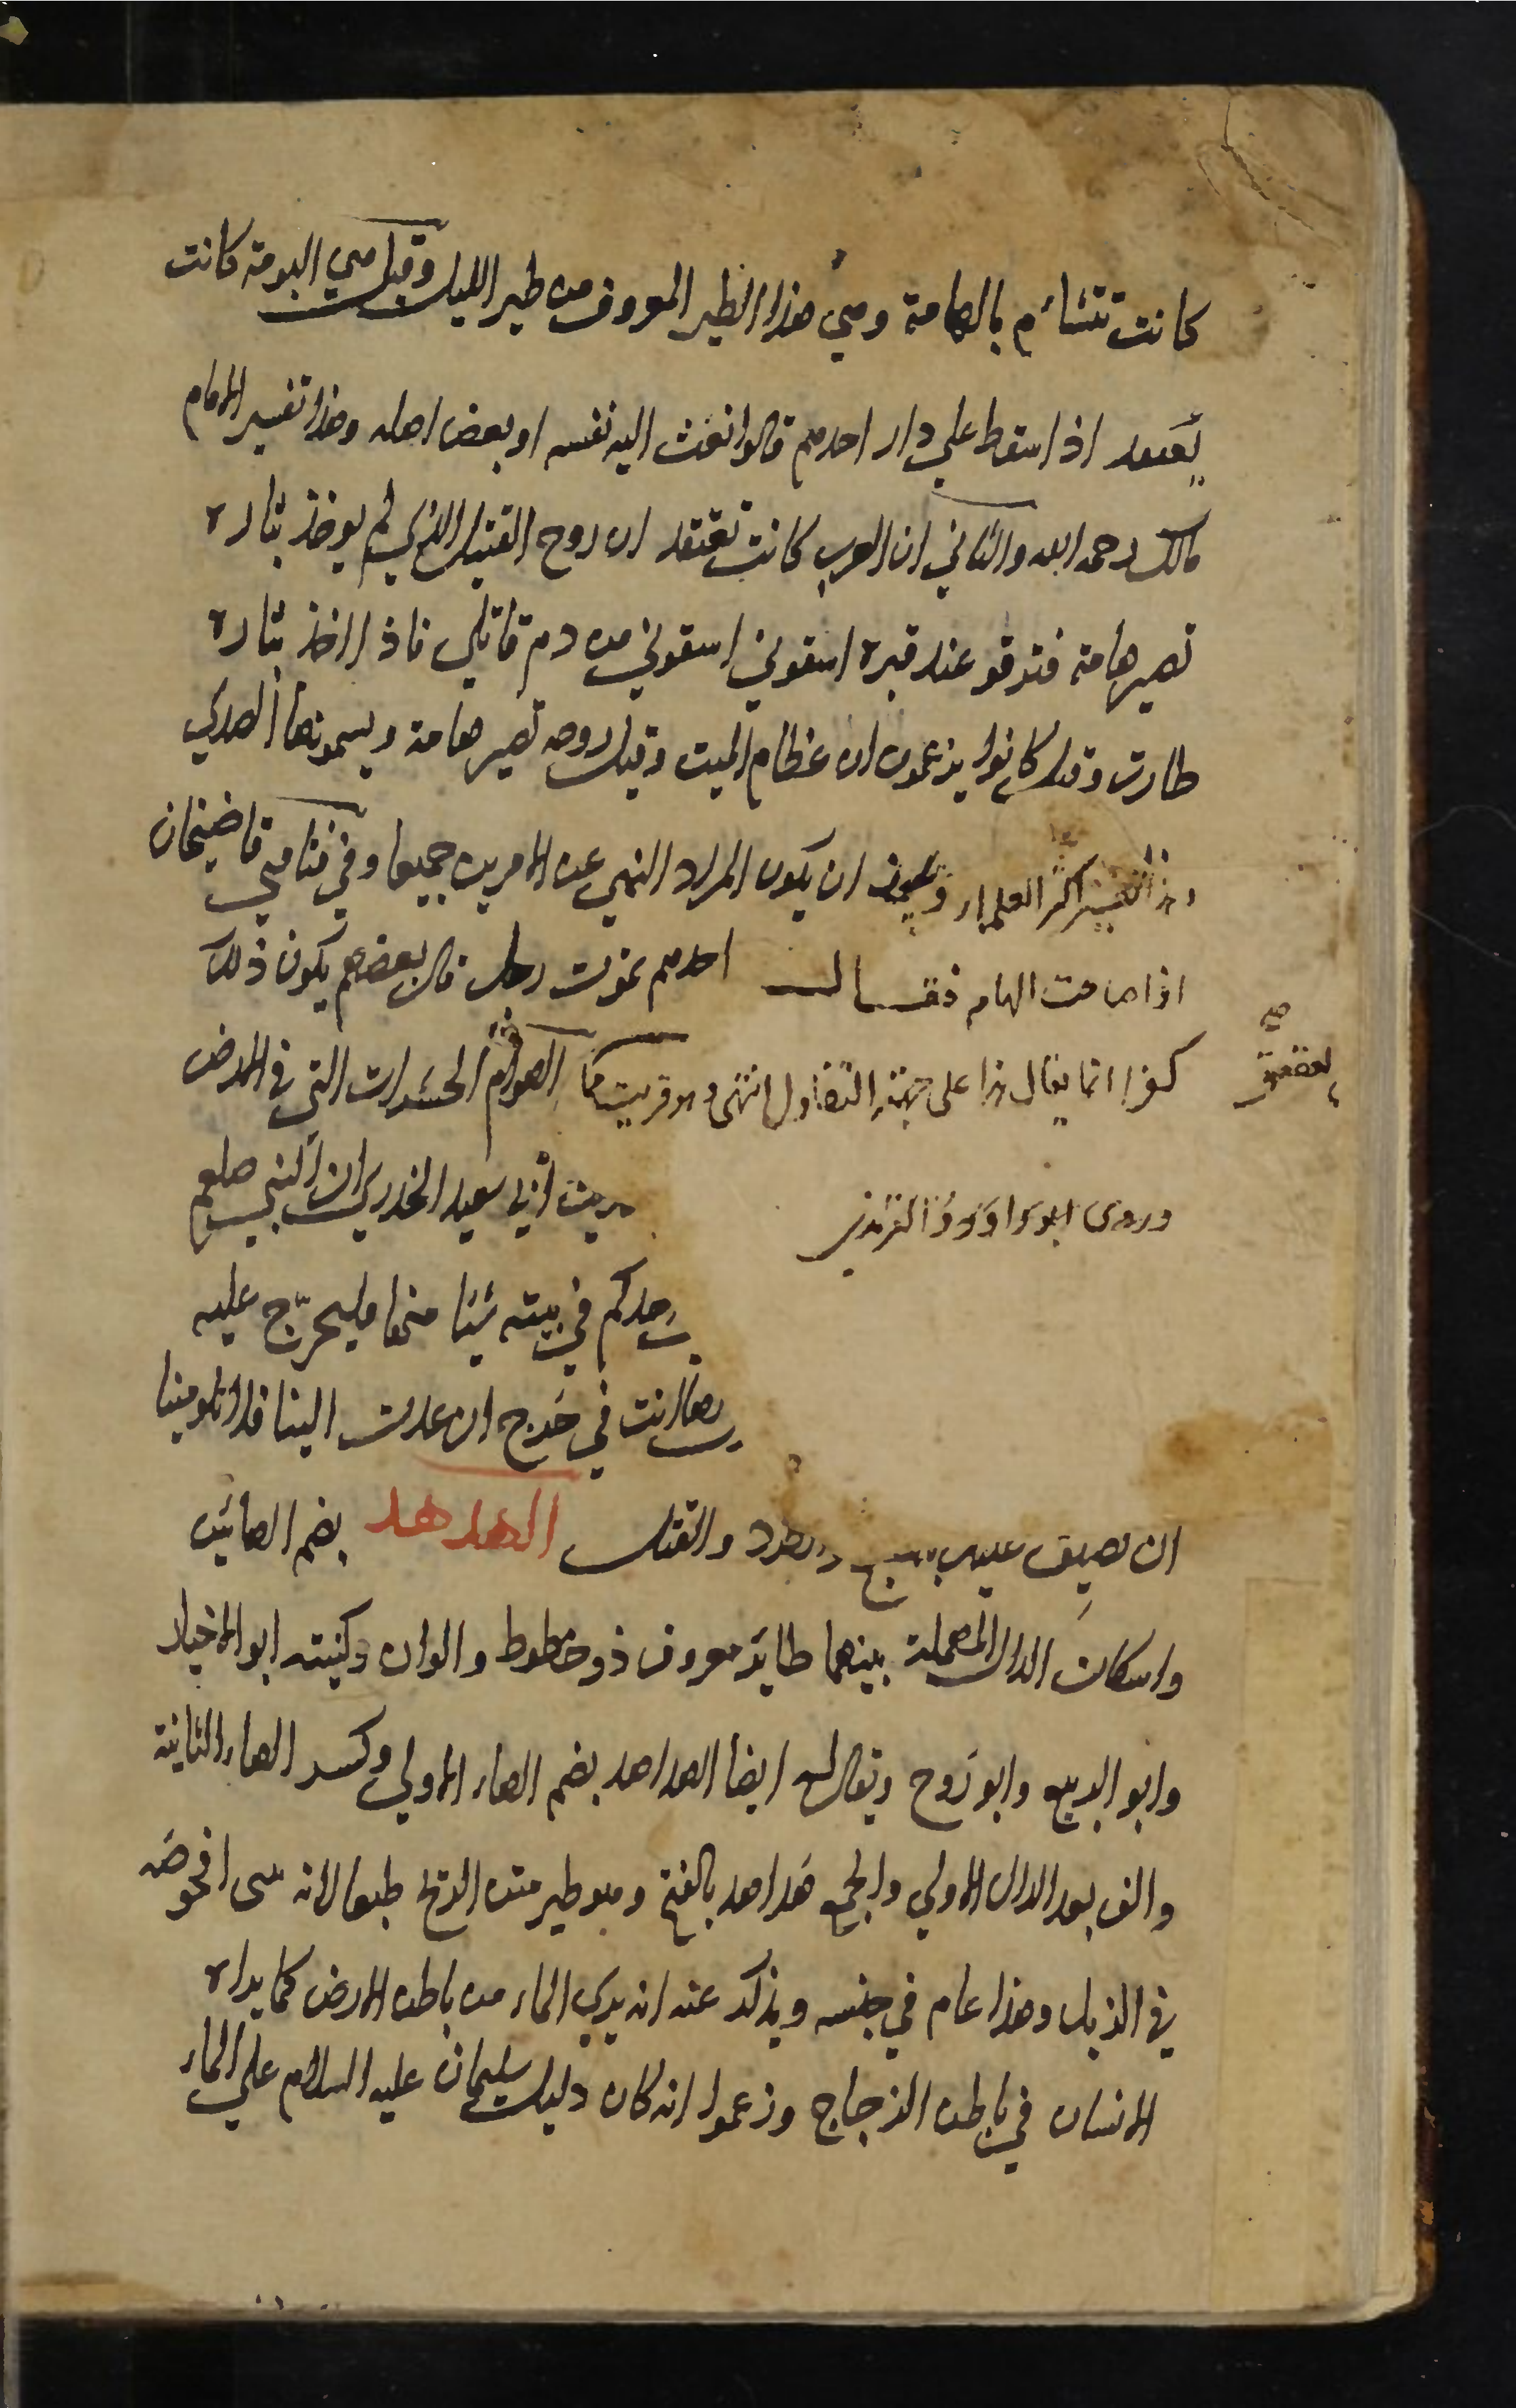 كانت تتشاءم بالهامة وهي هذا الطير المعروف من طير الليل وقيل هي البومة كانت
اذا سقط علي دار احدهم قالوا نعت اليه نفسه او بعض اهله وهذا تفسير الامام
مالك رحمه الله والثاني ان العرب كانت تعتقد ان روح القتيل الذي لم يوخذ بثاره
تصير هامة فتزقو عند قبره اسقوني اسقوني من دم قاتلي فاذا اخذ بثاره
طارت وقيل كانوا يزعمون ان عظام الميت وقيل روحه تصير هامة ويسمونها الصدي
اكثر العلماء ان يكون المراد النهي عن الامرين جميعا وفي فتاوي قاضيخان
اذا صاحت الهام فقال احدهم يموت رجل قال بعضهم يكون ذلك
كفرا انما يقال هذا على جهة التفاول انتهى الهوام الحشرات التي في الارض
العقعق
صح
وروى ابو داود والترمذي حديث ابي سعيد الخدري ان النبي صلعم
احدكم في بيته شيئا منها فليحرج عليه
انت في حرج ان عدت الينا فلا تلومينا
ان نضيق عليك والطرد والقتل الهدهد بضم الهائين
واسكان الدال المهملة بينهما طاير معروف ذو خطوط والوان وكنيته ابو الاخبار
وابو الربيع وابو روح ويقال له ايضا الهداهد بضم الهاء الاولي وكسر الهاء الثانية
والف بعد الدال الاولي والجمع هداهد بالفتح وهو طير منتن الريح طبعا لانه افحوصه
في الزبل وهذا عام في جنسه ويذكر عنه انه يري الماء من باطن الارض كما يراه
الانسان في باطن الزجاج وزعموا انه كان دليل سليمان عليه السلام علي الماء